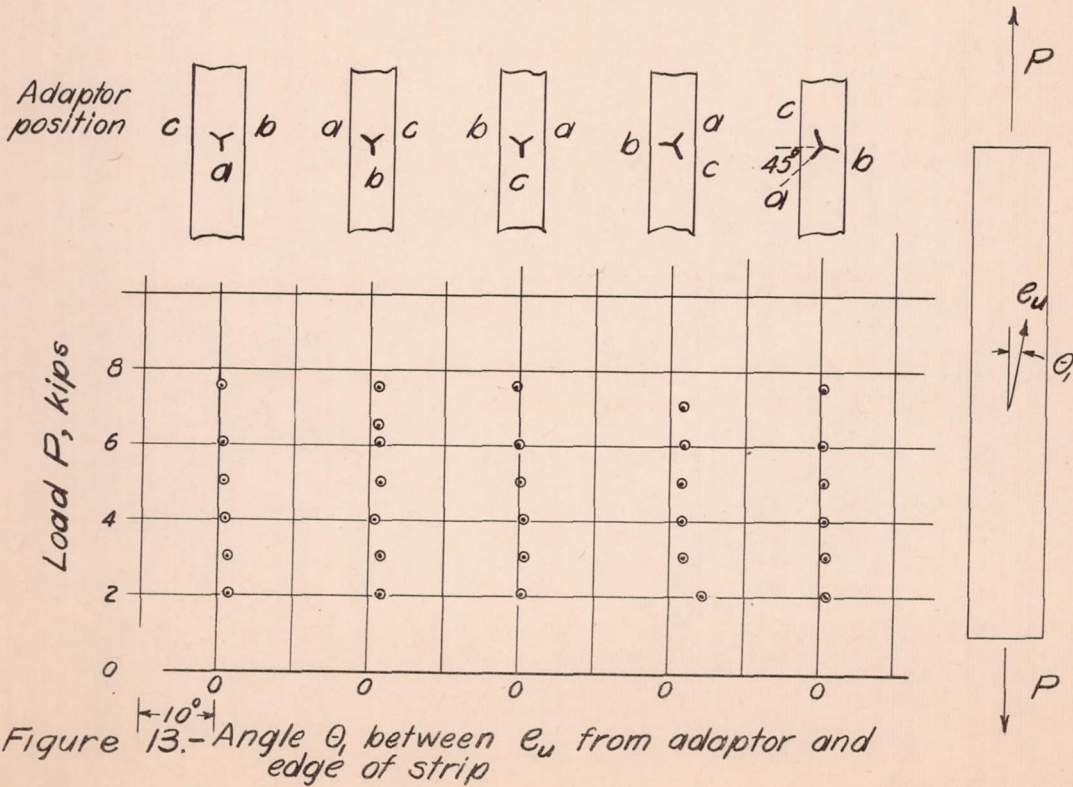 Adaptor
position
c b
a
a c
b
b a
c
b a
c
c
45° b
a
P
Load P, kips
8
6
4
2
0
0 0 0 0 0
10°
e_u
θ₁
P
Figure 13.- Angle θ₁ between e_u from adaptor and
edge of strip